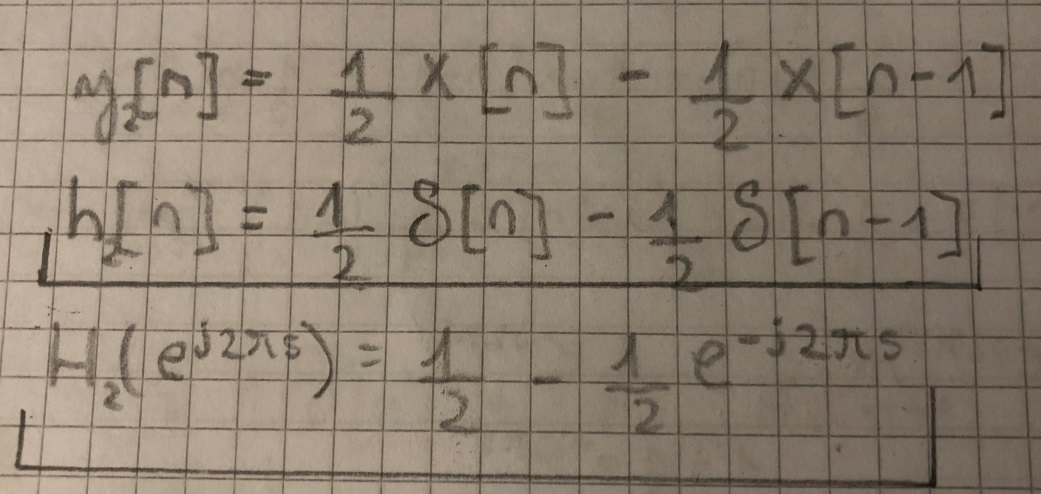 y₂[n] = 1/2 x[n] - 1/2 x[n-1]
h₂[n] = 1/2 δ[n] - 1/2 δ[n-1]
H₂(e^{j2πs}) = 1/2 - 1/2 e^{-j2πs}